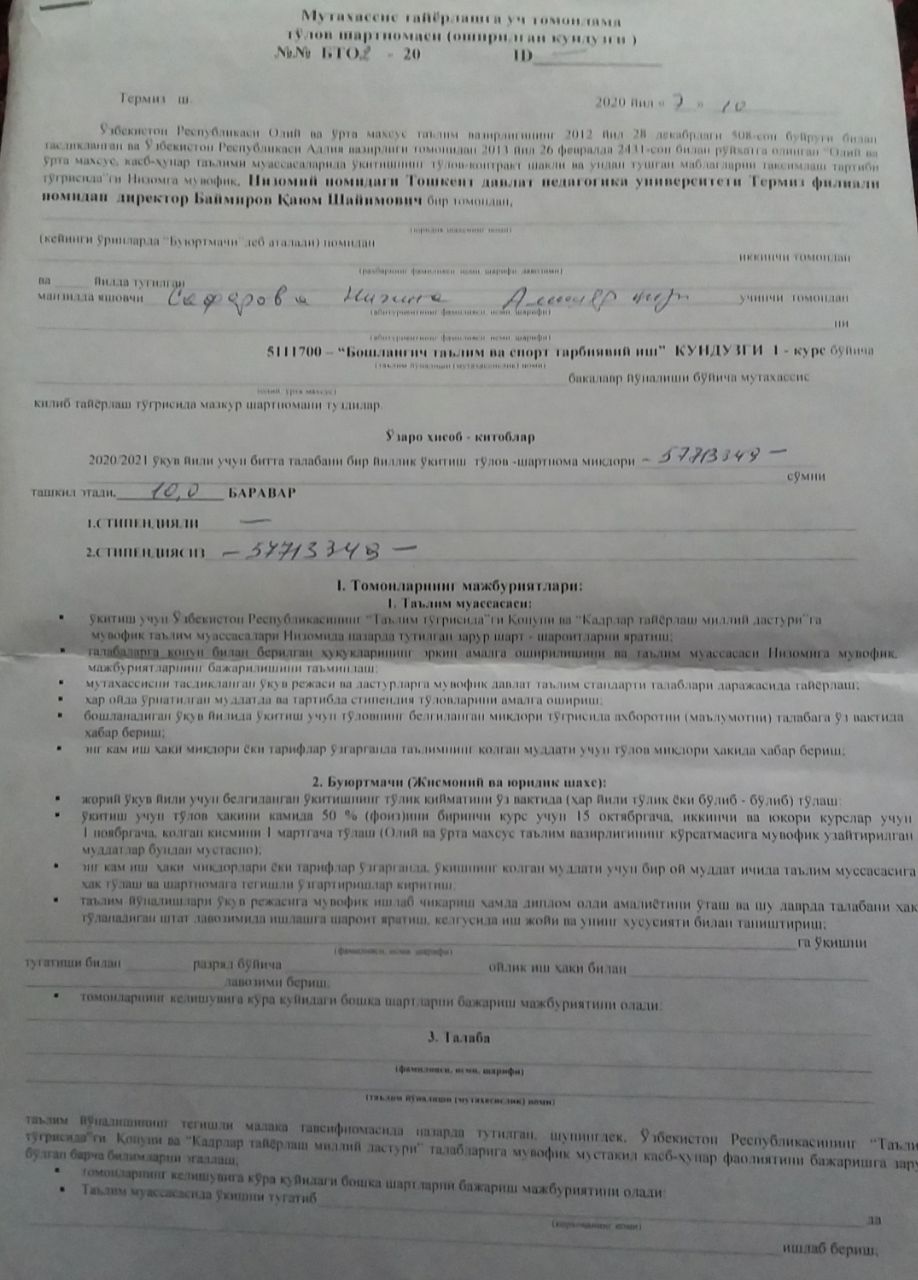 Мутахассис тайёрлашга уч томонлама
тўлов шартномаси (оширилган кундузги )
№№ БТО2 - 20 ID
Термиз ш. 2020 йил « 7 » 10
Ўзбекистон Республикаси Олий ва ўрта махсус таълим вазирлигининг 2012 йил 28 декабрдаги 508-сон буйруғи билан
тасдикланган ва Ўзбекистон Республикаси Адлия вазирлиги томонидан 2013 йил 26 февралда 2431-сон билан рўйхатга олинган "Олий ва
ўрта махсус, касб-ҳунар таълими муассасаларида ўкитишнинг тўлов-контракт шакли ва ундан тушган маблағларни таксимлаш тартиби
тўғрисида"ги Низомга мувофик, Низомий номидаги Тошкент давлат педагогика университети Термиз филиали
номидан директор Баймиров Қаюм Шайимович бир томондан,
(юридик шахснинг номи)
(кейинги ўринларда "Буюртмачи"деб аталади) номидан
иккинчи томондан
(раҳбарнинг фамилияси, исми, шарифи, лавозими)
ва йилда туғилган
манзилда яшовчи Сафарова Нигина Алишер кизи учинчи томондан
(абитуриентнинг фамилияси, исми, шарифи)
ни
(абитуриентнинг фамилияси, исми, шарифи)
5111700 – "Бошланғич таълим ва спорт тарбиявий иш" КУНДУЗГИ 1 - курс бўйича
(таълим йўналиши (мутахассислик) номи)
бакалавр йўналиши бўйича мутахассис
(олий, ўрта махсус)
килиб тайёрлаш тўғрисида мазкур шартномани туздилар.
Ўзаро хисоб - китоблар
2020/2021 ўкув йили учун битта талабани бир йиллик ўкитиш тўлов -шартнома микдори – 57713348 –
сўмни
ташкил этади, 10,0 БАРАВАР
1.СТИПЕНДИЯЛИ —
2.СТИПЕНДИЯСИЗ – 57713348 –
I. Томонларнинг мажбуриятлари:
1. Таълим муассасаси:
▪ ўкитиш учун Ўзбекистон Республикасининг "Таълим тўғрисида"ги Қонуни ва "Кадрлар тайёрлаш миллий дастури"га
мувофик таълим муассасалари Низомида назарда тутилган зарур шарт - шароитларни яратиш;
▪ талабаларга қонун билан берилган ҳуқуқларининг эркин амалга оширилишини ва таълим муассасаси Низомига мувофик,
мажбуриятларнинг бажарилишини таъминлаш;
▪ мутахассисни тасдикланган ўкув режаси ва дастурларга мувофик давлат таълим стандарти талаблари даражасида тайёрлаш;
▪ хар ойда ўрнатилган муддатда ва тартибда стипендия тўловларини амалга ошириш;
▪ бошланадиган ўкув йилида ўкитиш учун тўловнинг белгиланган микдори тўғрисида ахборотни (маълумотни) талабага ўз вактида
хабар бериш;
▪ энг кам иш ҳаки микдори ёки тарифлар ўзгарганда таълимнинг колган муддати учун тўлов микдори хакида хабар бериш;
2. Буюртмачи (Жисмоний ва юридик шахс):
▪ жорий ўкув йили учун белгиланган ўкитишнинг тўлик кийматини ўз вактида (хар йили тўлик ёки бўлиб - бўлиб) тўлаш;
▪ ўкитиш учун тўлов хакини камида 50 % (фоиз)ини биринчи курс учун 15 октябргача, иккинчи ва юкори курслар учун
1 ноябргача, колган кисмини 1 мартгача тўлаш (Олий ва ўрта махсус таълим вазирлигининг кўрсатмасига мувофик узайтирилган
муддатлар бундан мустасно);
▪ энг кам иш хаки микдорлари ёки тарифлар ўзгарганда, ўкишнинг колган муддати учун бир ой муддат ичида таълим муссасасига
хак тўлаш ва шартномага тегишли ўзгартиришлар киритиш;
▪ таълим йўналишлари ўкув режасига мувофик ишлаб чикариш хамда диплом олди амалиётини ўташ ва шу даврда талабани хак
тўланадиган штат лавозимида ишлашга шароит яратиш, келгусида иш жойи ва унинг хусусияти билан таништириш;
га ўкишни
(фамилияси, исми, шарифи)
тугатиши билан разряд бўйича ойлик иш хаки билан
лавозими бериш;
▪ томонларнинг келишувига кўра куйидаги бошка шартларни бажариш мажбуриятини олади:
3. Талаба
(фамилияси, исми, шарифи)
(таълим йўналиши (мутахассислик) номи)
таълим йўналишининг тегишли малака тавсифномасида назарда тутилган, шунингдек, Ўзбекистон Республикасининг "Таъли
тўғрисида"ги Қонуни ва "Кадрлар тайёрлаш миллий дастури" талабларига мувофик мустакил касб-ҳунар фаолиятини бажаришга зару
бўлган барча билимларни эгаллаш;
▪ томонларнинг келишувига кўра куйидаги бошка шартларни бажариш мажбуриятини олади:
▪ Таълим муассасасида ўкишни тугатиб да
(корхонанинг номи)
ишлаб бериш;